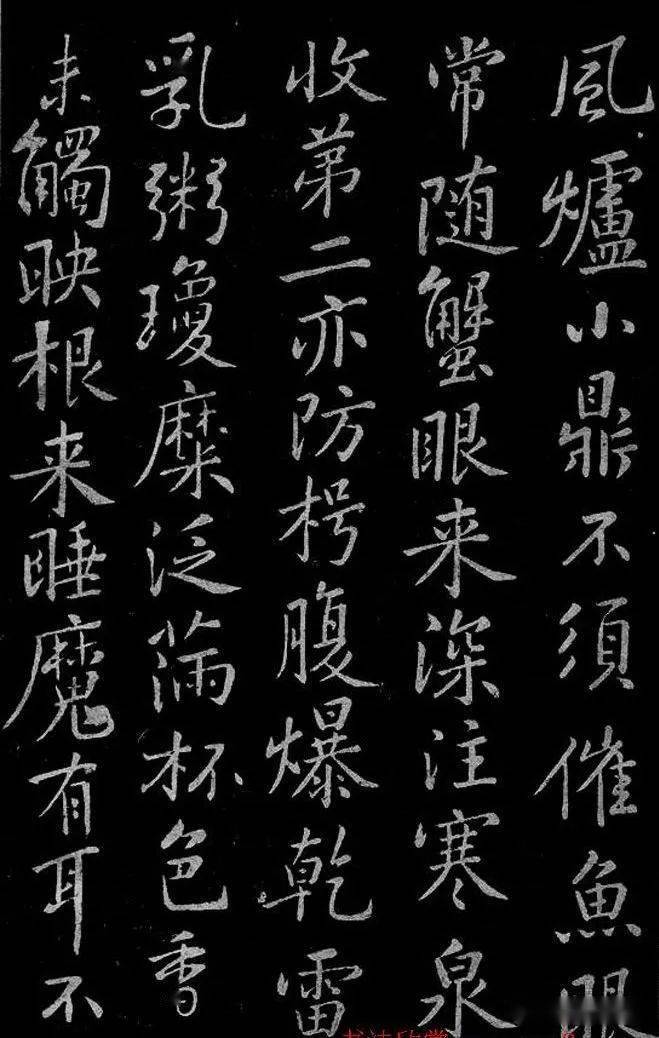 風爐小鼎不須催魚眼
常随蟹眼来深注寒泉
收苐二亦防枵腹爆乾雷
乳粥瓊糜泛满杯色香
未觸映根来睡魔有耳不